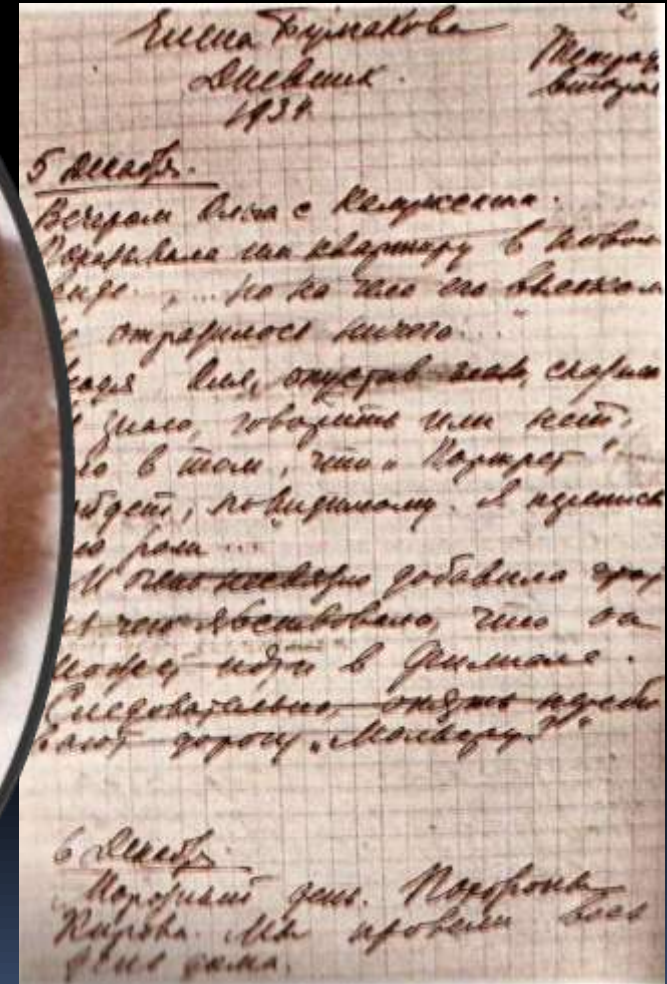 Елена Булгакова
Дневник.
1934
Тетрадь
вторая
2
5 декабря.
Вечером Оля с Калужским.
Показывала им квартиру в новом
виде. „... но на чело его высоком
не отразилось ничего..."
Оля, опустив глаза, сказала
знаю, говорить или нет,
в том, что „Портрет"
по-видимому. Я переписываю
роли...
И очень несвязно добавила
из чего явствовало, что он
может идти в Филиале.
Следовательно, опять
дорогу „Мольеру"?
6 декабря
Морозный день. Похороны
Кирова. Мы провели весь
день дома.